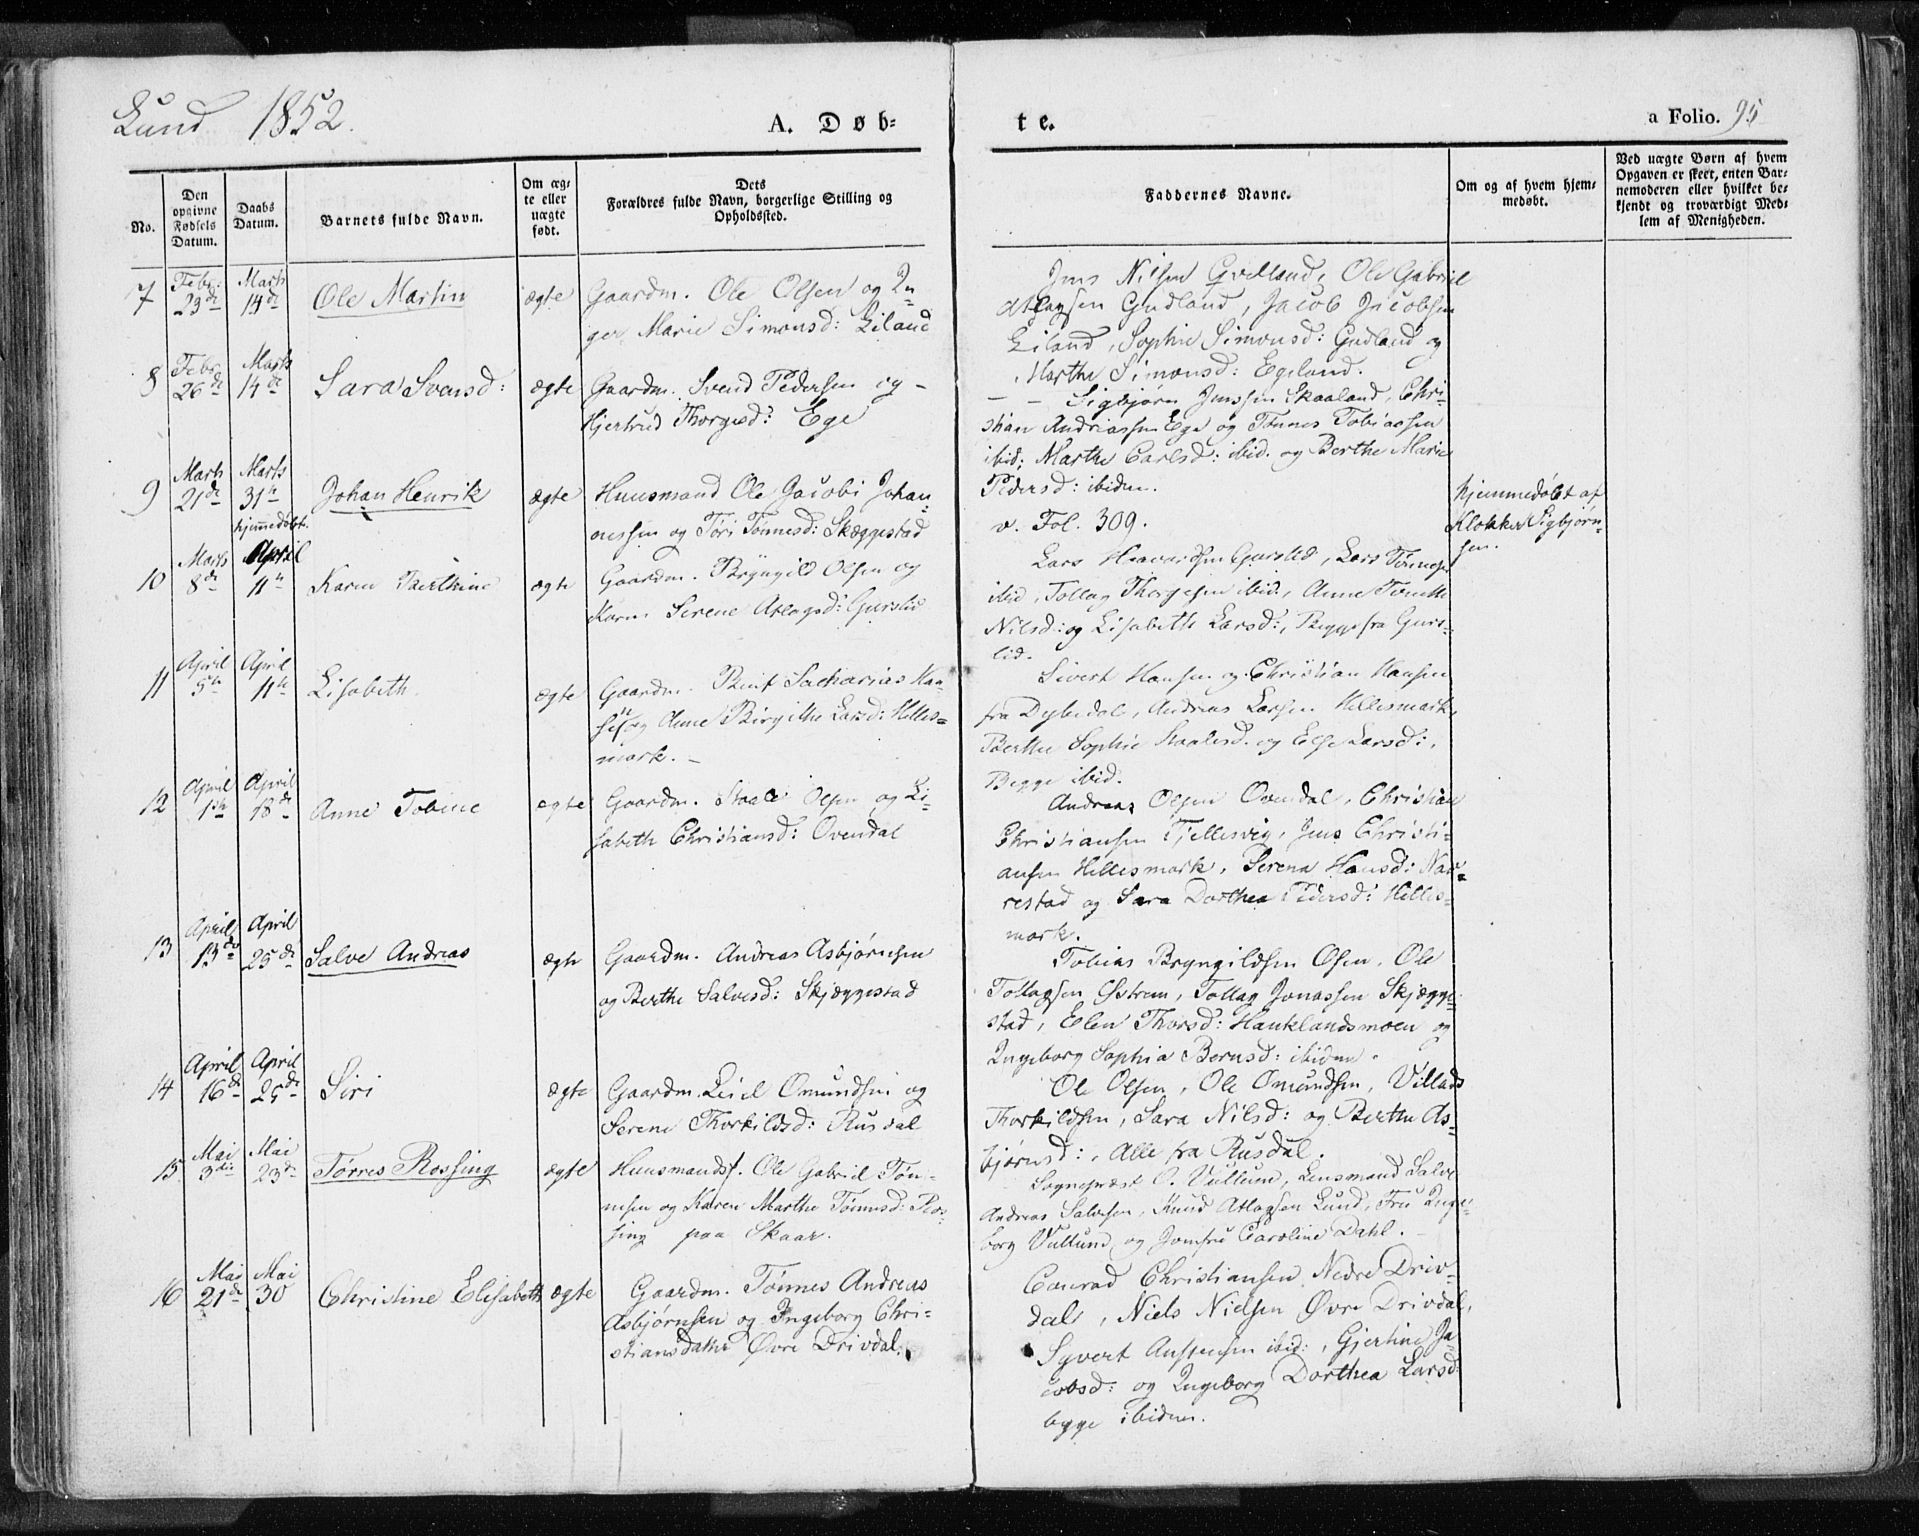 Lund 1852.
A. Døb-
te.
a Folio. 95
No.
Den opgivne Fødsels Datum.
Daabs Datum.
Barnets fulde Navn.
Om ægte eller uægte født.
Dets Forældres fulde Navn, borgerlige Stilling og Opholdssted.
Faddernes Navne.
Om og af hvem hjemmedøbt.
Ved uægte Børn af hvem Opgaven er skeet, enten Barnemoderen eller hvilket bekjendt og troværdigt Medlem af Menigheden.
7 Febr: 23de Marts 14de Ole Martin ægte Gaardm. Ole Olsen og In-
ger Marie Simonsd: Eiland
Jens Nilsen Gvedland, Ole Gabriel
Atlagsen Gudland, Jacob Jacobsen
Eiland, Sophie Simonsd: Gudland og
Marthe Simonsd: Egeland.
8 Febr. 26de Marts 14de Sara Svensd: ægte Gaardm. Svend Pedersen og -
Hjertrud Thorgesd: Ege
- - Sigbjørn Jenssen Skaaland, Chri-
stian Andriassen Ege og Tønnes Tobiassen
ibid; Marthe Carlsd: ibid. og Berthe Marie
Pedersd: ibidem.
9 Marts 21de Marts 31te hjemmedøbt. Johan Henrik ægte Huusmand Ole Jacobi Johan-
nessen og Tøri Tønnesd: Skæggestad
v. Fol. 309.
hjemmedøbt af
Klokker Sigbjørn-
sen.
10 Marts 8de April 11te Karen Berthine ægte Gaardm. Bryngild Olsen og
Karen Serene Atlagsd: Gursted
Lars Haavardsen Gursted, Lars Tønnesen
ibid, Tollag Thorgesen ibid., Anne Tomine
Nilsd: og Lisabeth Larsd:, Begge fra Gurs-
lid.
11 April 5te April 11te Lisabeth ægte Gaardm. Bent Sacharias Han-
sen og Anne Birgithe Larsd: Hilles-
mark. -
Sivert Hansen og Christian Hansen
fra Dybedal, Andreas Larsen Hillesmark,
Berthe Sophie Staalesd. og Else Larsd:,
Begge ibid.
12 April 1te April 18de Anne Tobine ægte Gaardm. Staale Olsen og Li-
sabeth Christiansd: Ovendal
Andreas Olsen Ovendal, Christian
Christiansen Tjellesvig, Jens Christi-
ansen Hillesmark, Serena Hansd: Nau-
restad og Sara Dorthea Pedersd: Hilles-
mark.
13 April 13de April 25de Salve Andreas ægte Gaardm. Andreas Asbjørnsen
og Berthe Salvesd: Skjæggestad
Tobias Bryngildsen Osen, Ole
Tollagsen Østrem, Tollag Jonassen Skjægge-
stad, Elen Thorsd: Hauklandsmoen og
Ingeborg Sophia Berntsd: ibidem.
14 April 16de April 25de Siri ægte Gaardm. Eeiel Omundsen og
Serene Thorkildsd: Rusdal
Ole Olsen, Ole Omundsen, Villads
Thorkildsen, Sara Nilsd: og Berthe As-
bjørnsd:, Alle fra Rusdal.
15 Mai 3die Mai 23de Tørres Rossing ægte Huusmandsf. Ole Gabriel Tøn-
nesen og Karen Marthe Tønnesd: Ros-
sing paa Skaar.
Sognepræst O. Vullum, Lensmand Salve
Andreas Salvesen, Knud Atlagsen Lund, Fru Inge-
borg Vullum og Jomfru Caroline Dahl.
16 Mai 21de Mai 30 Christine Elisabeth ægte Gaardm. Tønnes Andreas
Asbjørnsen og Ingeborg Chri-
stiansdatter Øvre Drivdal.
Conrad Christiansen Nedre Driv-
dal, Niels Nielsen Øvre Drivdal,
Syvert Anstensen ibid:, Gjertine Ja-
cobsd: og Ingeborg Dorthea Larsd:
begge ibidem.